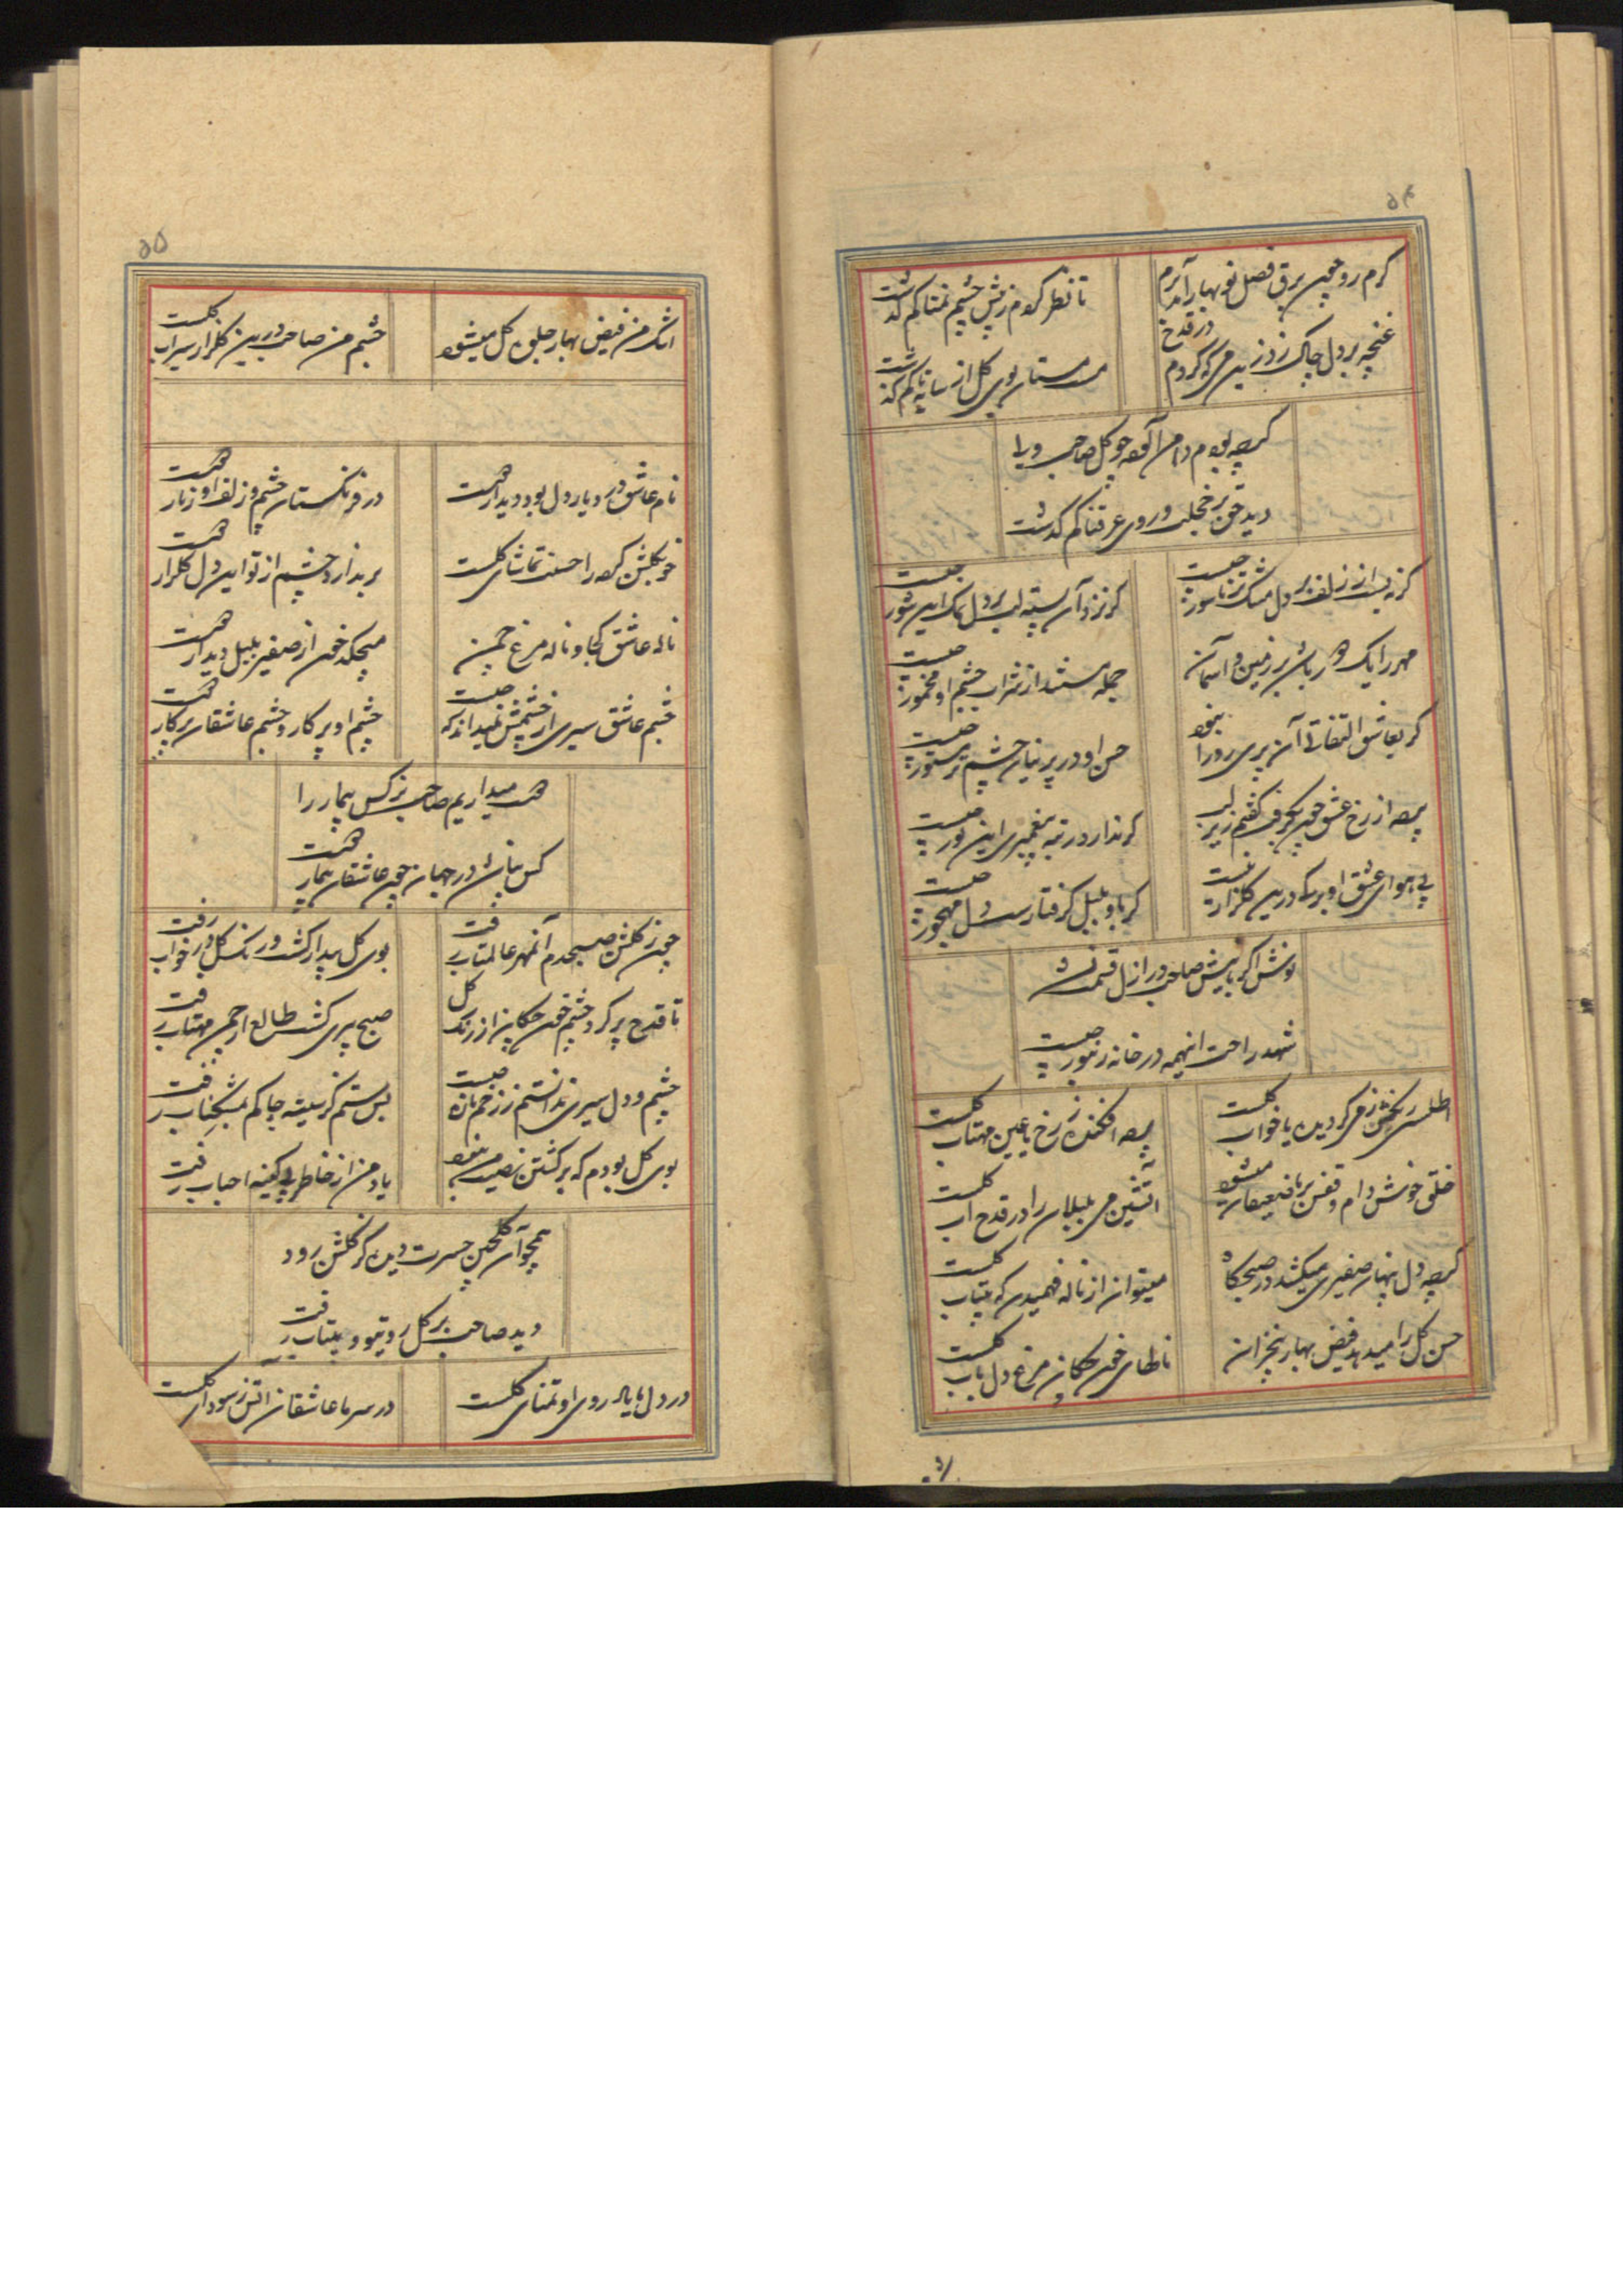 ۵۴
گرم رو چون برق فصل نوبهار آمد برم
تا نظر کردم ز پیش چشم نمناکم گذشت
غنچه بر دل چاک زد زین می که کردم در قدح
مست مستان بوی گل از سایه تاکم گذشت
گرچه بودم دامن آلوده چو گل صاحب ولی
دید چون بر خجلت و روی عرقناکم گذشت
گر نه بیند از زلف بر دل مشک تر ناسور چیست
گر نزد آن بسته لب بر دل نمک این شور چیست
مهر را یک رو بر زمین و آسمان
جمله مستند از شراب چشم او مخمور چیست
گر بعاشق التفاتی آن پری رو را نبود
حسن او در پرنیان چشم تر مستور چیست
پرده از رخ عشق چون بر گفتم زیر لب
گر ندارد رتبه پیغمبری این نور چیست
بی هوای عشق او برگی درین گلزار نیست
گر باو بلبل گرفتارست دل مهجور چیست
نوش اگر با نیش صاحب در ازل قسمت نشد
شهد راحت اینهمه در خانه زنبور چیست
اطلسی رنگش ز می گردیده یا خواب گلست
پرده افکنده ز رخ یا عین مهتاب گلست
خلق خوش دام و قفس بر ما ضعیفان میشود
آتشین می بلبلان را در قدح آب گلست
گرچه دل پنهان صفیری میکشد در صبحگاه
میتوان از ناله فهمیدن که بیتاب گلست
حسن گل را میدهد فیض بهار بیخزان
نالهای خون چکان مرغ دل باب گلست
۵۵
اشک من فیض بهار جلوه گل میشود
چشم من صاحب درین گلزار سیراب گلست
نام عاشق در دیار دل بود دیدار هست
در فرنگستان چشم و زلف او زنار هست
خو بگلشن کرده را حسنت تماشای گلست
بر ندارد چشم از تو این دل گلزار هست
ناله عاشق کجا و ناله مرغ چمن
میچکد خون از صفیر بلبل دیدار هست
چشم عاشق سیری از چشمش نمیداند که چیست
چشم او پرکار و چشم عاشقان پرکار هست
دوست میداریم صاحب نرگس بیمار را
کس نباشد در جهان چون عاشقان بیمار هست
چون ز گلشن صبحدم آن مهر عالمتاب رفت
بوی گل بیدار گشت و رنگ گل در خواب رفت
تا قدح پر کرد چشم خون چکان از رنگ گل
صبح پیری گشت طالع از چمن مهتاب رفت
چشم و دل سیری ندانستم ز زخم تازه چیست
بس ستم کز سینه چاکم بمشک ناب رفت
بوی گل بودم که برگشتن نصیب من نبود
یاد من از خاطر بی کینه احباب رفت
همچو آن گلچین حسرت دیده کز گلشن رود
دید صاحب بر گل روی تو و بیتاب رفت
در دل ما یاد روی او تمنای گلست
در سر ما عاشقان آتش ز سودای گلست